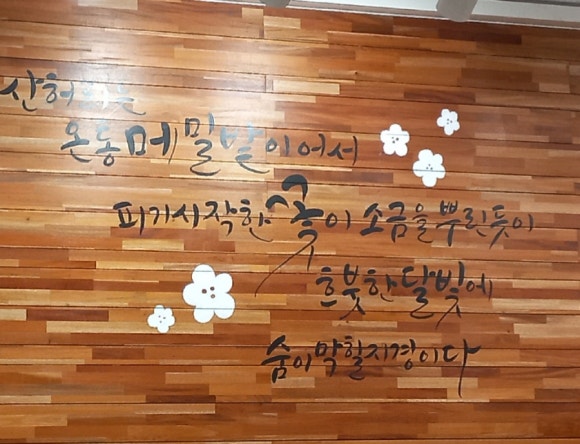 산허리는
온통 메밀밭이어서
피기시작한 꽃이 소금을 뿌린듯이
흐붓한 달빛에
숨이막힐지경이다